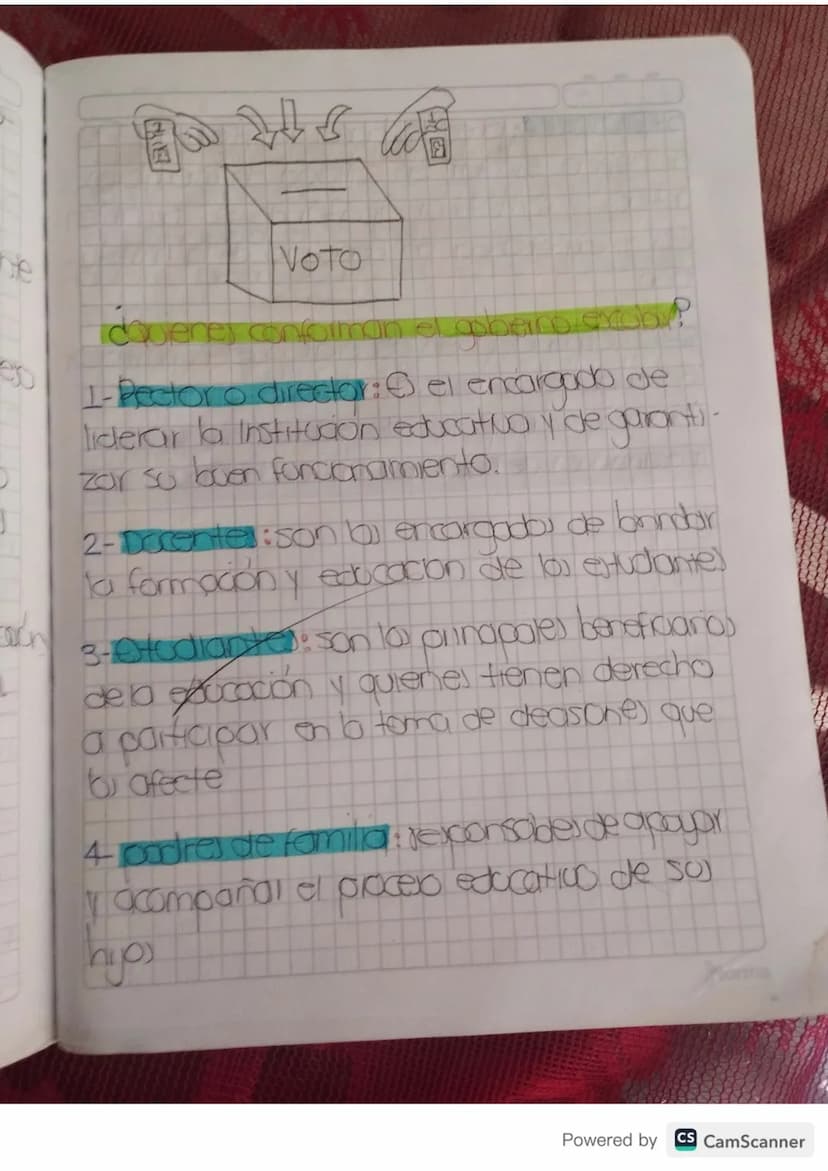 VOTO
¿Quienes conforman el gobierno escolar?
1-Rector o director: Es el encargado de
liderar la Institución educativa y de garanti-
zar su buen funcionamiento.
2-Docentes: son los encargados de brindar
la formación y educación de los estudiantes
3-Estudiantes: son los principales beneficiarios
de la educación y quienes tienen derecho
a participar en la toma de decisiones que
los afecte
4-padres de familia: responsables de apoyar
y acompañar el proceso educativo de sus
hijos
Norma
Powered by CS CamScanner